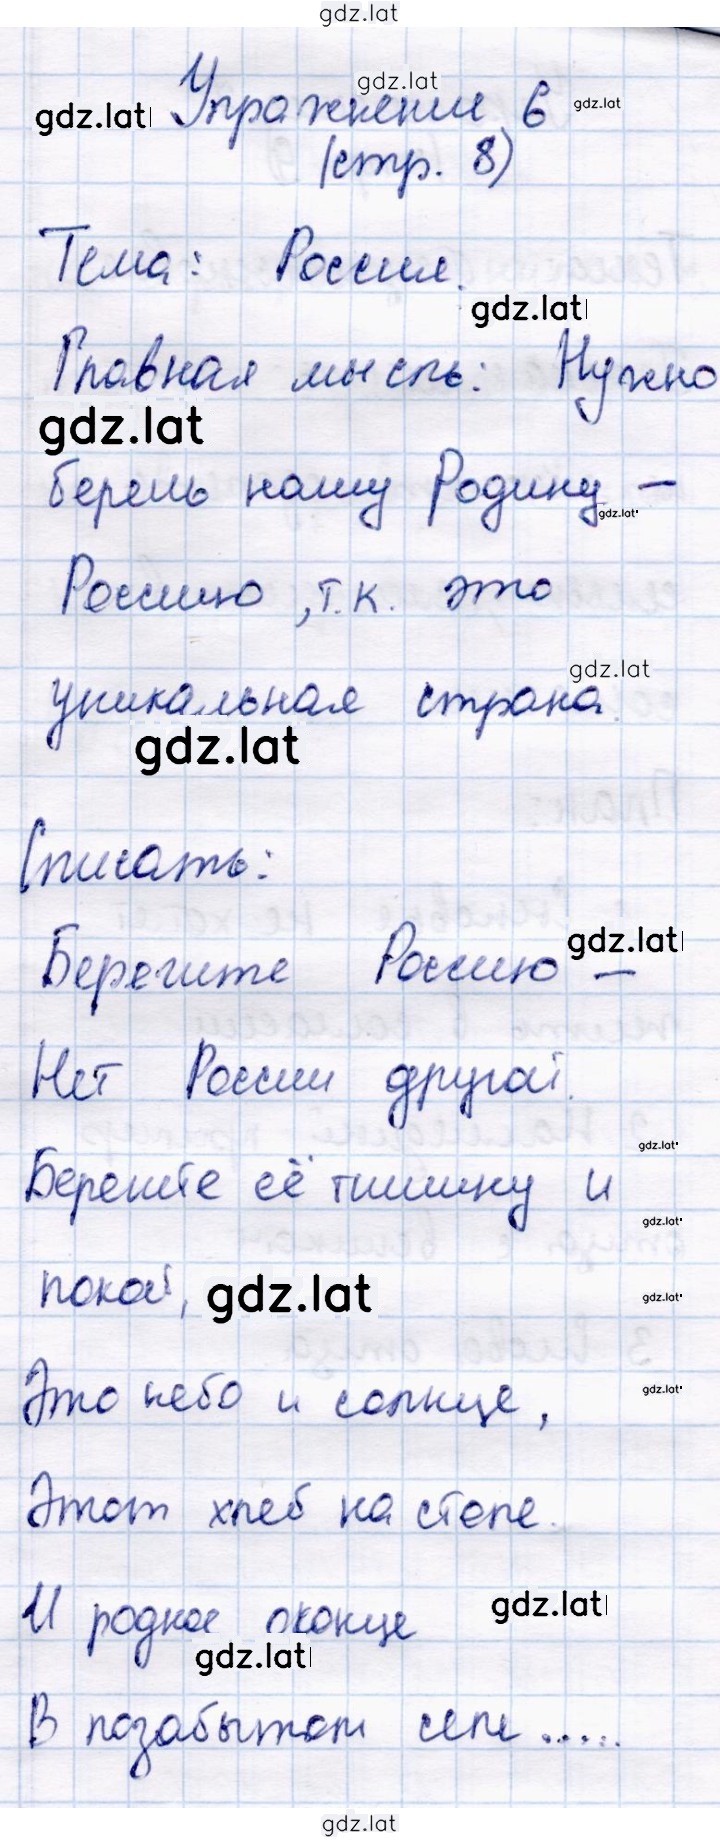 gdz.lat
gdz.lat
gdz.lat Упражнение 6 gdz.lat
(стр. 8)
Тема: Россия.
gdz.lat
Главная мысль: Нужно
gdz.lat
беречь нашу Родину –
gdz.lat
Россию, т.к. это
gdz.lat
уникальная страна.
gdz.lat
Списать:
gdz.lat
Берегите Россию –
Нет России другой.
gdz.lat
Берегите её тишину и
gdz.lat
покой, gdz.lat gdz.lat
Это небо и солнце, gdz.lat
Этот хлеб на столе.
И родное оконце gdz.lat
gdz.lat
В позабытом селе.....
gdz.lat